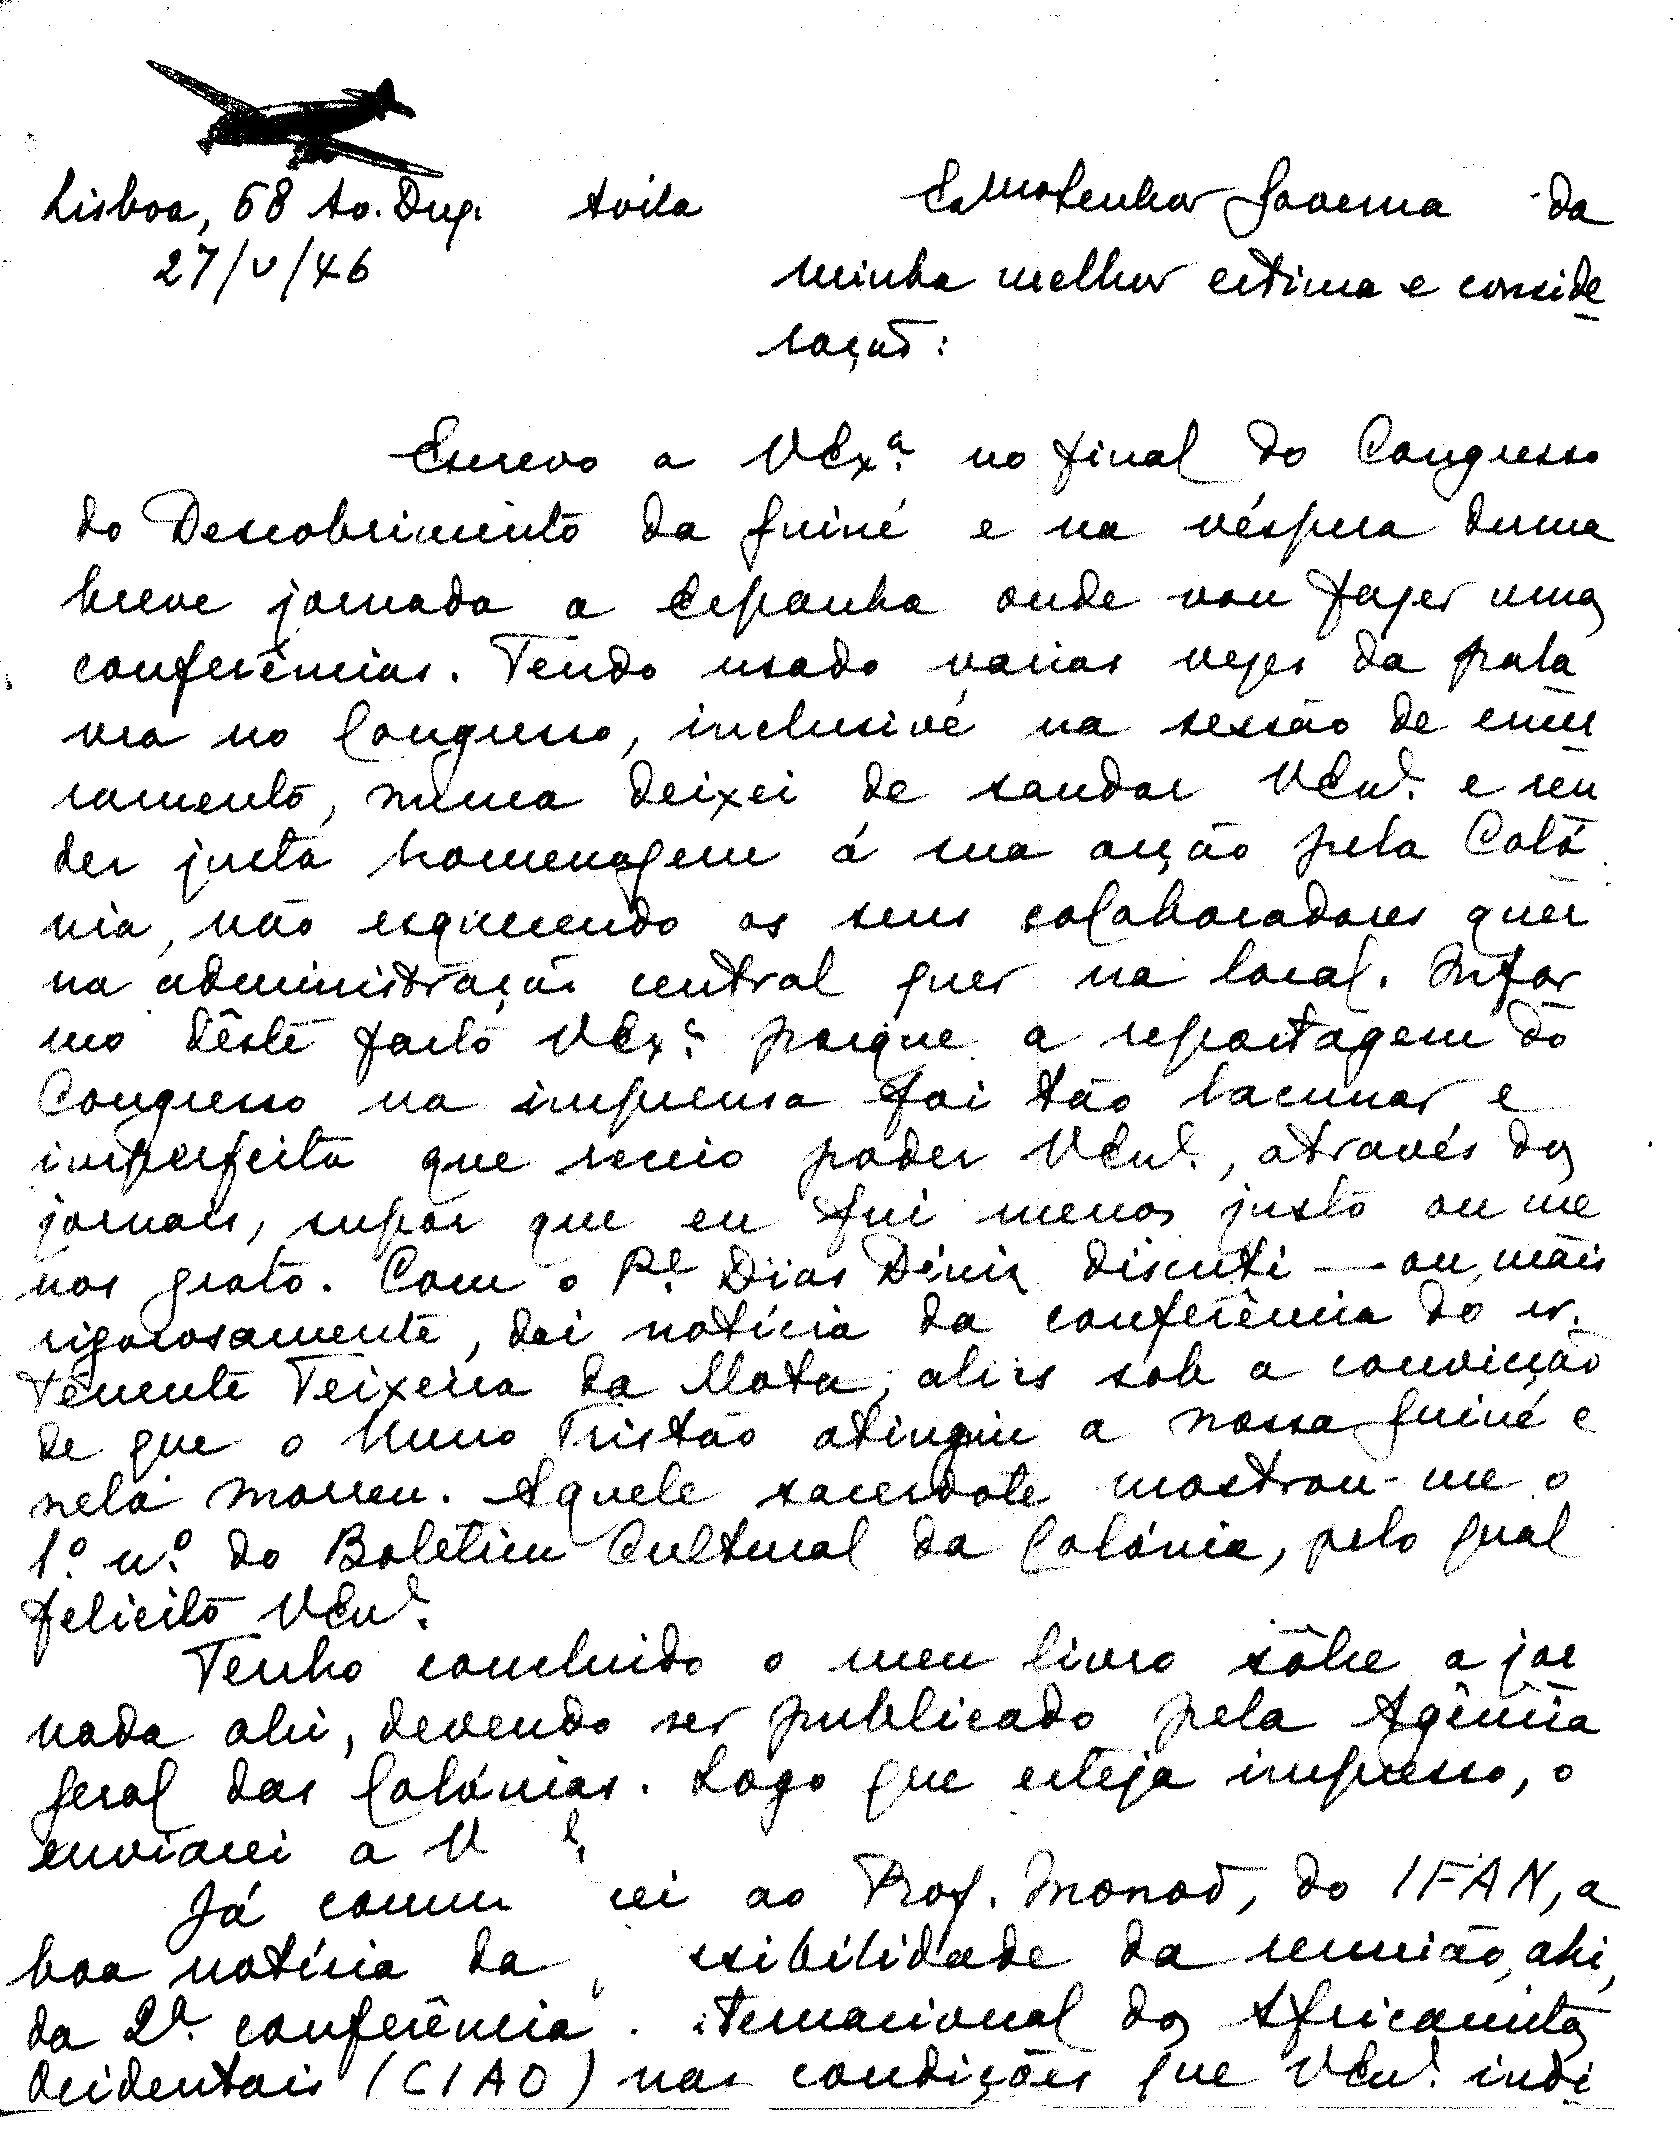 Lisboa, 68 Av. Duq. Avila
27/V/46
Exmo Senhor Governa da
minha melhor estima e conside
ração:
Escrevo a VExª no final do Congresso
do Descobrimento da Guiné e na véspera duma
breve jornada a Espanha onde vou fazer umas
conferências. Tendo usado varias vezes da pala
vra no Congresso, inclusivé na sessão de encer
ramento, nunca deixei de saudar VExª e ren
der justa homenagem á sua acção pela Coló
nia, não esquecendo os seus colaboradores quer
na administração central quer na local. Infor
mo dêste facto VExª porque a reportagem do
Congresso na imprensa foi tão lacunar e
imperfeita que receio poder VExª, através dos
jornais, supôr que eu fui menos justo ou me
nos grato. Com o Pe. Dias Dinis discuti — ou, mais
rigorosamente, dei notícia da conferência do sr.
Tenente Teixeira da Mota, aliás sob a convicção
de que o Nuno Tristão atingiu a nossa Guiné e
nela morreu. Aquele sacerdote mostrou-me o
1º nº do Boletim Cultural da Colónia, pelo qual
felicito VExª.
Tenho concluido o meu livro sôbre a jor
nada ahi, devendo ser publicado pela Agência
Geral das Colónias. Logo que esteja impresso, o
enviarei a V ª.
Já comun cei ao Prof. Monod, do IFAN, a
boa notícia da ssibilidade da reunião, ahi,
da 2ª conferência ternacional dos Africanistas
Ocidentais (CIAO) nas condições que VExª indi